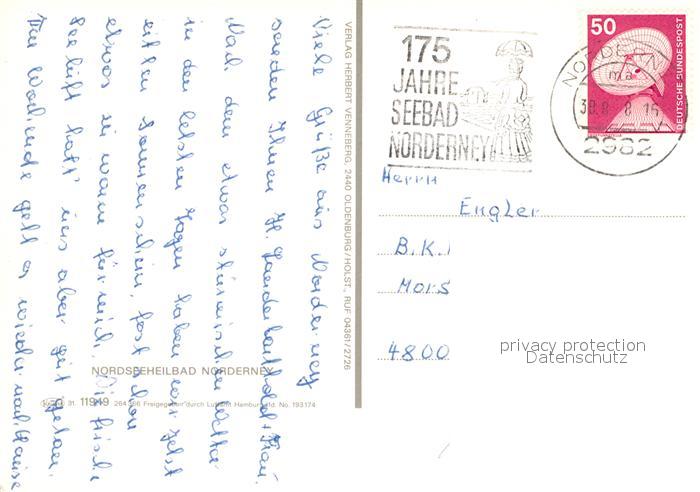 Viele Grüße aus Norderney
senden Ihnen H. + Frau.
Nach dem etwas stürmischen Wetter
in den letzten Tagen haben wir jetzt
Sonnenschein, fast schon
etwas zu warm für mich. Die frische
Seeluft hatt' uns aber gut getan.
Am Wochende geht es wieder nach Hause
NORDSEEHEILBAD NORDERNEY
31. 11949 264/66 Freigegeben durch Luftamt Hamburg Nr. No. 193174
VERLAG HERBERT VENNEBERG, 2440 OLDENBURG/HOLST., RUF 04361/2726
175
JAHRE
SEEBAD
NORDERNEY
50
DEUTSCHE BUNDESPOST
NORDERNEY
ma
2982
Herrn
Engler
B.K.
Mors
4800
privacy protection
Datenschutz